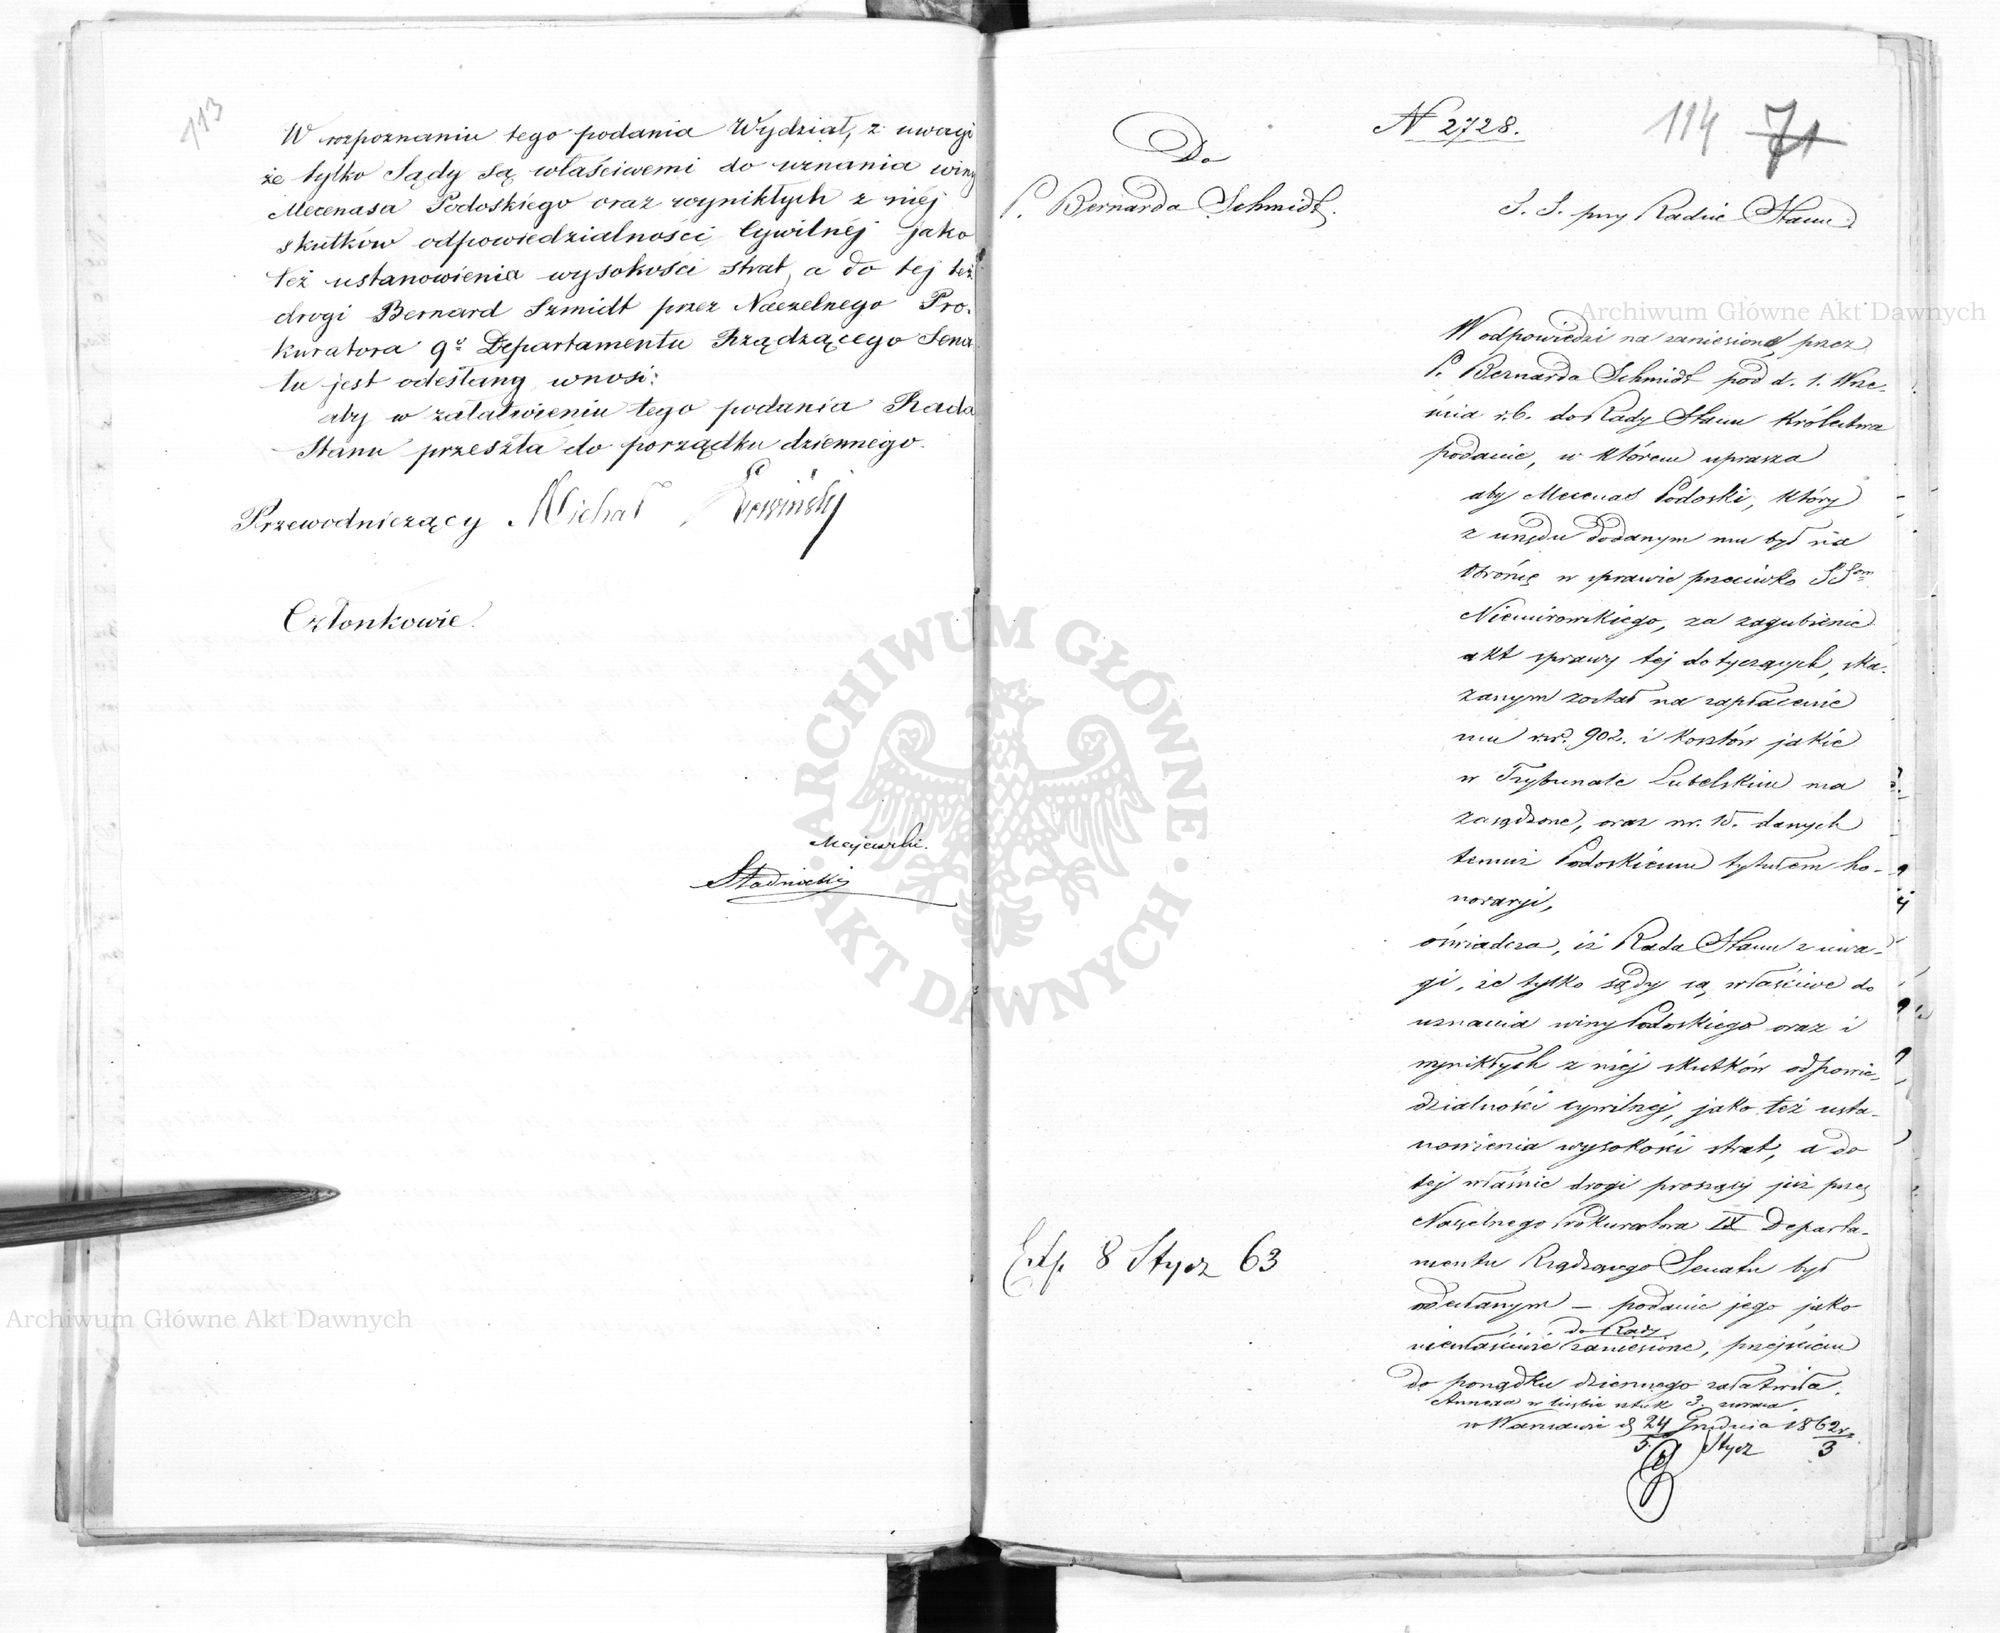 113
W rozpoznaniu tego podania Wydział, z uwagi
że tylko Sądy są właściwemi do uznania winy
Mecenasa Podoskiego oraz wynikłych z niéj
skutków odpowiedzialności Cywilnéj jako
też ustanowienia wysokości strat, a do tej też
drogi Bernard Szmidt przez Naczelnego Pro-
kuratora 9º Departamentu Rządzącego Sena-
tu jest odesłany wnosi:
aby w załatwieniu tego podania Rada
Stanu przeszła do porządku dziennego.
Przewodniczący Michał
Członkowie.
Majewski.
Stadnicki
114 71
N 2728.
Do
P. Bernarda Schmidt.
S. S. przy Radzie Stanu
W odpowiedzi na zaniesione przez
P. Bernarda Schmidt pod d. 1. Wrze-
śnia r.b. do Rady Stanu Królestwa
podanie, w którem uprasza
aby Mecenas Podoski, który
z urzędu dodanym mu był na
obrońcę w sprawie przeciwko
Niemirowskiego, za zagubienie
akt sprawy tej dotyczących, ska-
zanym został na zapłacenie
mu 902. i kosztów jakie
w Trybunale Lubelskim ma
zasądzone, oraz 15. danych
temuż Podoskiemu tytułem ho-
noraryi,
oświadcza, iż Rada Stanu z uwa-
gi, że tylko sądy są właściwe do
uznania winy Podoskiego oraz i
wynikłych z niéj skutków odpowie-
dzialności cywilnéj, jako też usta-
nowienia wysokości strat, a do
tej właśnie drogi proszący już przez
Naczelnego Prokuratora IX Departa-
mentu Rządzącego Senatu był
odesłanym – podanie jego jako
do Rady
niewłaściwie zaniesione, przejściem
do porządku dziennego załatwiła.
Annexa w liczbie sztuk 3. zwraca.
w Warszawie d 24 Grudnia 1862 r.
5. Stycz 3
Exp. 8 Stycz 63
Archiwum Główne Akt Dawnych
Archiwum Główne Akt Dawnych
ARCHIWUM GŁÓWNE
AKT DAWNYCH